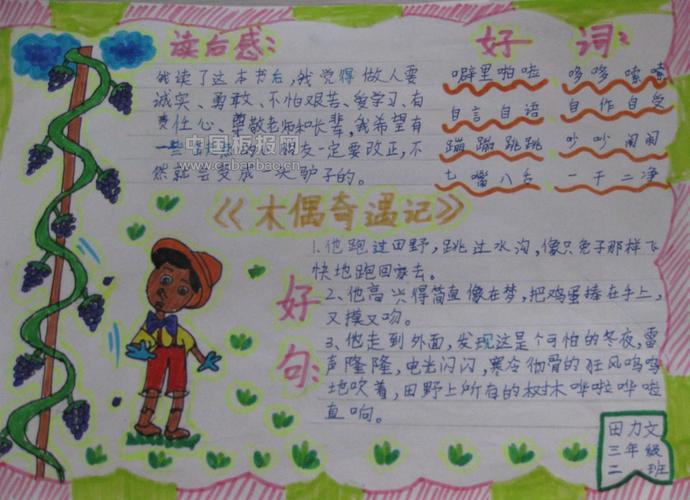 读后感:
我读了这本书后,我觉得做人要
诚实、勇敢、不怕艰苦、爱学习、有
责任心、尊敬老师和长辈,我希望有
一些
朋友一定要改正,不
然就会变成一头驴子的。
中国板报网
www.cnbanbao.cn
好词:
噼里啪啦 哆哆嗦嗦
自言自语 自作自受
蹦蹦跳跳 吵吵闹闹
七嘴八舌 一干二净
《木偶奇遇记》
好句:
1.他跑过田野,跳过水沟,像只兔子那样飞
快地跑回家去。
2、他高兴得简直像在梦,把鸡蛋捧在手上,
又摸又吻。
3、他走到外面,发现这是个可怕的冬夜,雷
声隆隆,电光闪闪,寒冷彻骨的狂风呜呜
地吹着,田野上所有的树木哗啦哗啦
直响。
田力文
三年级
二班